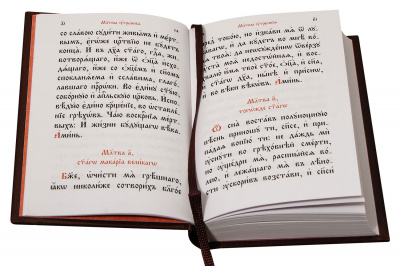 Мл҃твы ᲂу҆́трєннїѧ
со сла́вою сꙋди́ти живы̑мъ и҆ мє́рт-
вымъ, є҆гѡ́же црⷭ҇твїю не бꙋ́детъ
конца̀. И҆ въ дх҃а ст҃а́го, гдⷭ҇а, жи-
вотворѧ́щаго, и҆́же ѿ ѻ҆ц҃а̀ и҆схо-
дѧ́щаго, и҆́же со ѻ҆ц҃е́мъ и҆ сн҃омъ
спокланѧ́ема и҆ ссла́вима, глаго́-
лавшаго прⷪ҇ро́ки. Во є҆ди́нꙋ ст҃ꙋ́ю,
собо́рнꙋю и҆ а҆пⷭ҇льскꙋю цр҃ковь. И҆спо-
вѣ́дꙋю є҆ди́но кр҃ще́нїе, во ѡ҆ставле́-
нїе грѣхѡ́въ. Ча́ю воскрⷭ҇нїѧ ме́рт-
выхъ: И҆ жи́зни бꙋ́дꙋщагѡ вѣ́ка.
А҆ми́нь.
Мл҃тва а҃,
ст҃а́гѡ мака́рїа вели́кагѡ
Бж҃е, ѡ҆чи́сти мѧ̀ грѣ́шнаго,
ꙗ҆́кѡ николи́же сотвори́хъ бл҃го́е
Мл҃твы ᲂу҆́трєннїѧ
пред̾ тобо́ю, но и҆зба́ви мѧ̀ ѿ лꙋ-
ка́вагѡ, и҆ да бꙋ́детъ во мнѣ̀ во́лѧ
твоѧ̀: да неѡсꙋжде́ннѡ ѿве́рзꙋ
ᲂу҆ста̀ моѧ̑ недостѡ́йнаѧ, и҆ вос-
хвалю̀ и҆́мѧ твоѐ ст҃о́е, ѻ҆ц҃а̀, и҆ сн҃а,
и҆ ст҃а́гѡ дх҃а, ны́нѣ и҆ при́снѡ,
и҆ во вѣ́ки вѣкѡ́въ. А҆ми́нь.
Мл҃тва в҃,
тогѡ́жде ст҃а́гѡ
Ѿ сна̀ воста́въ полꙋ́нощнꙋю
пѣ́снь приношꙋ́ ти, сп҃се, и҆ при-
па́даѧ вопїю́ ти: не да́ждь мѝ
ᲂу҆снꙋ́ти во грѣхо́внѣй сме́рти,
но ᲂу҆ще́дри мѧ̀, распны́йсѧ во́-
лею, и҆ лежа́щаго мѧ̀ въ лѣ́но-
сти ᲂу҆скори́въ возста́ви, и҆ сп҃сѝ